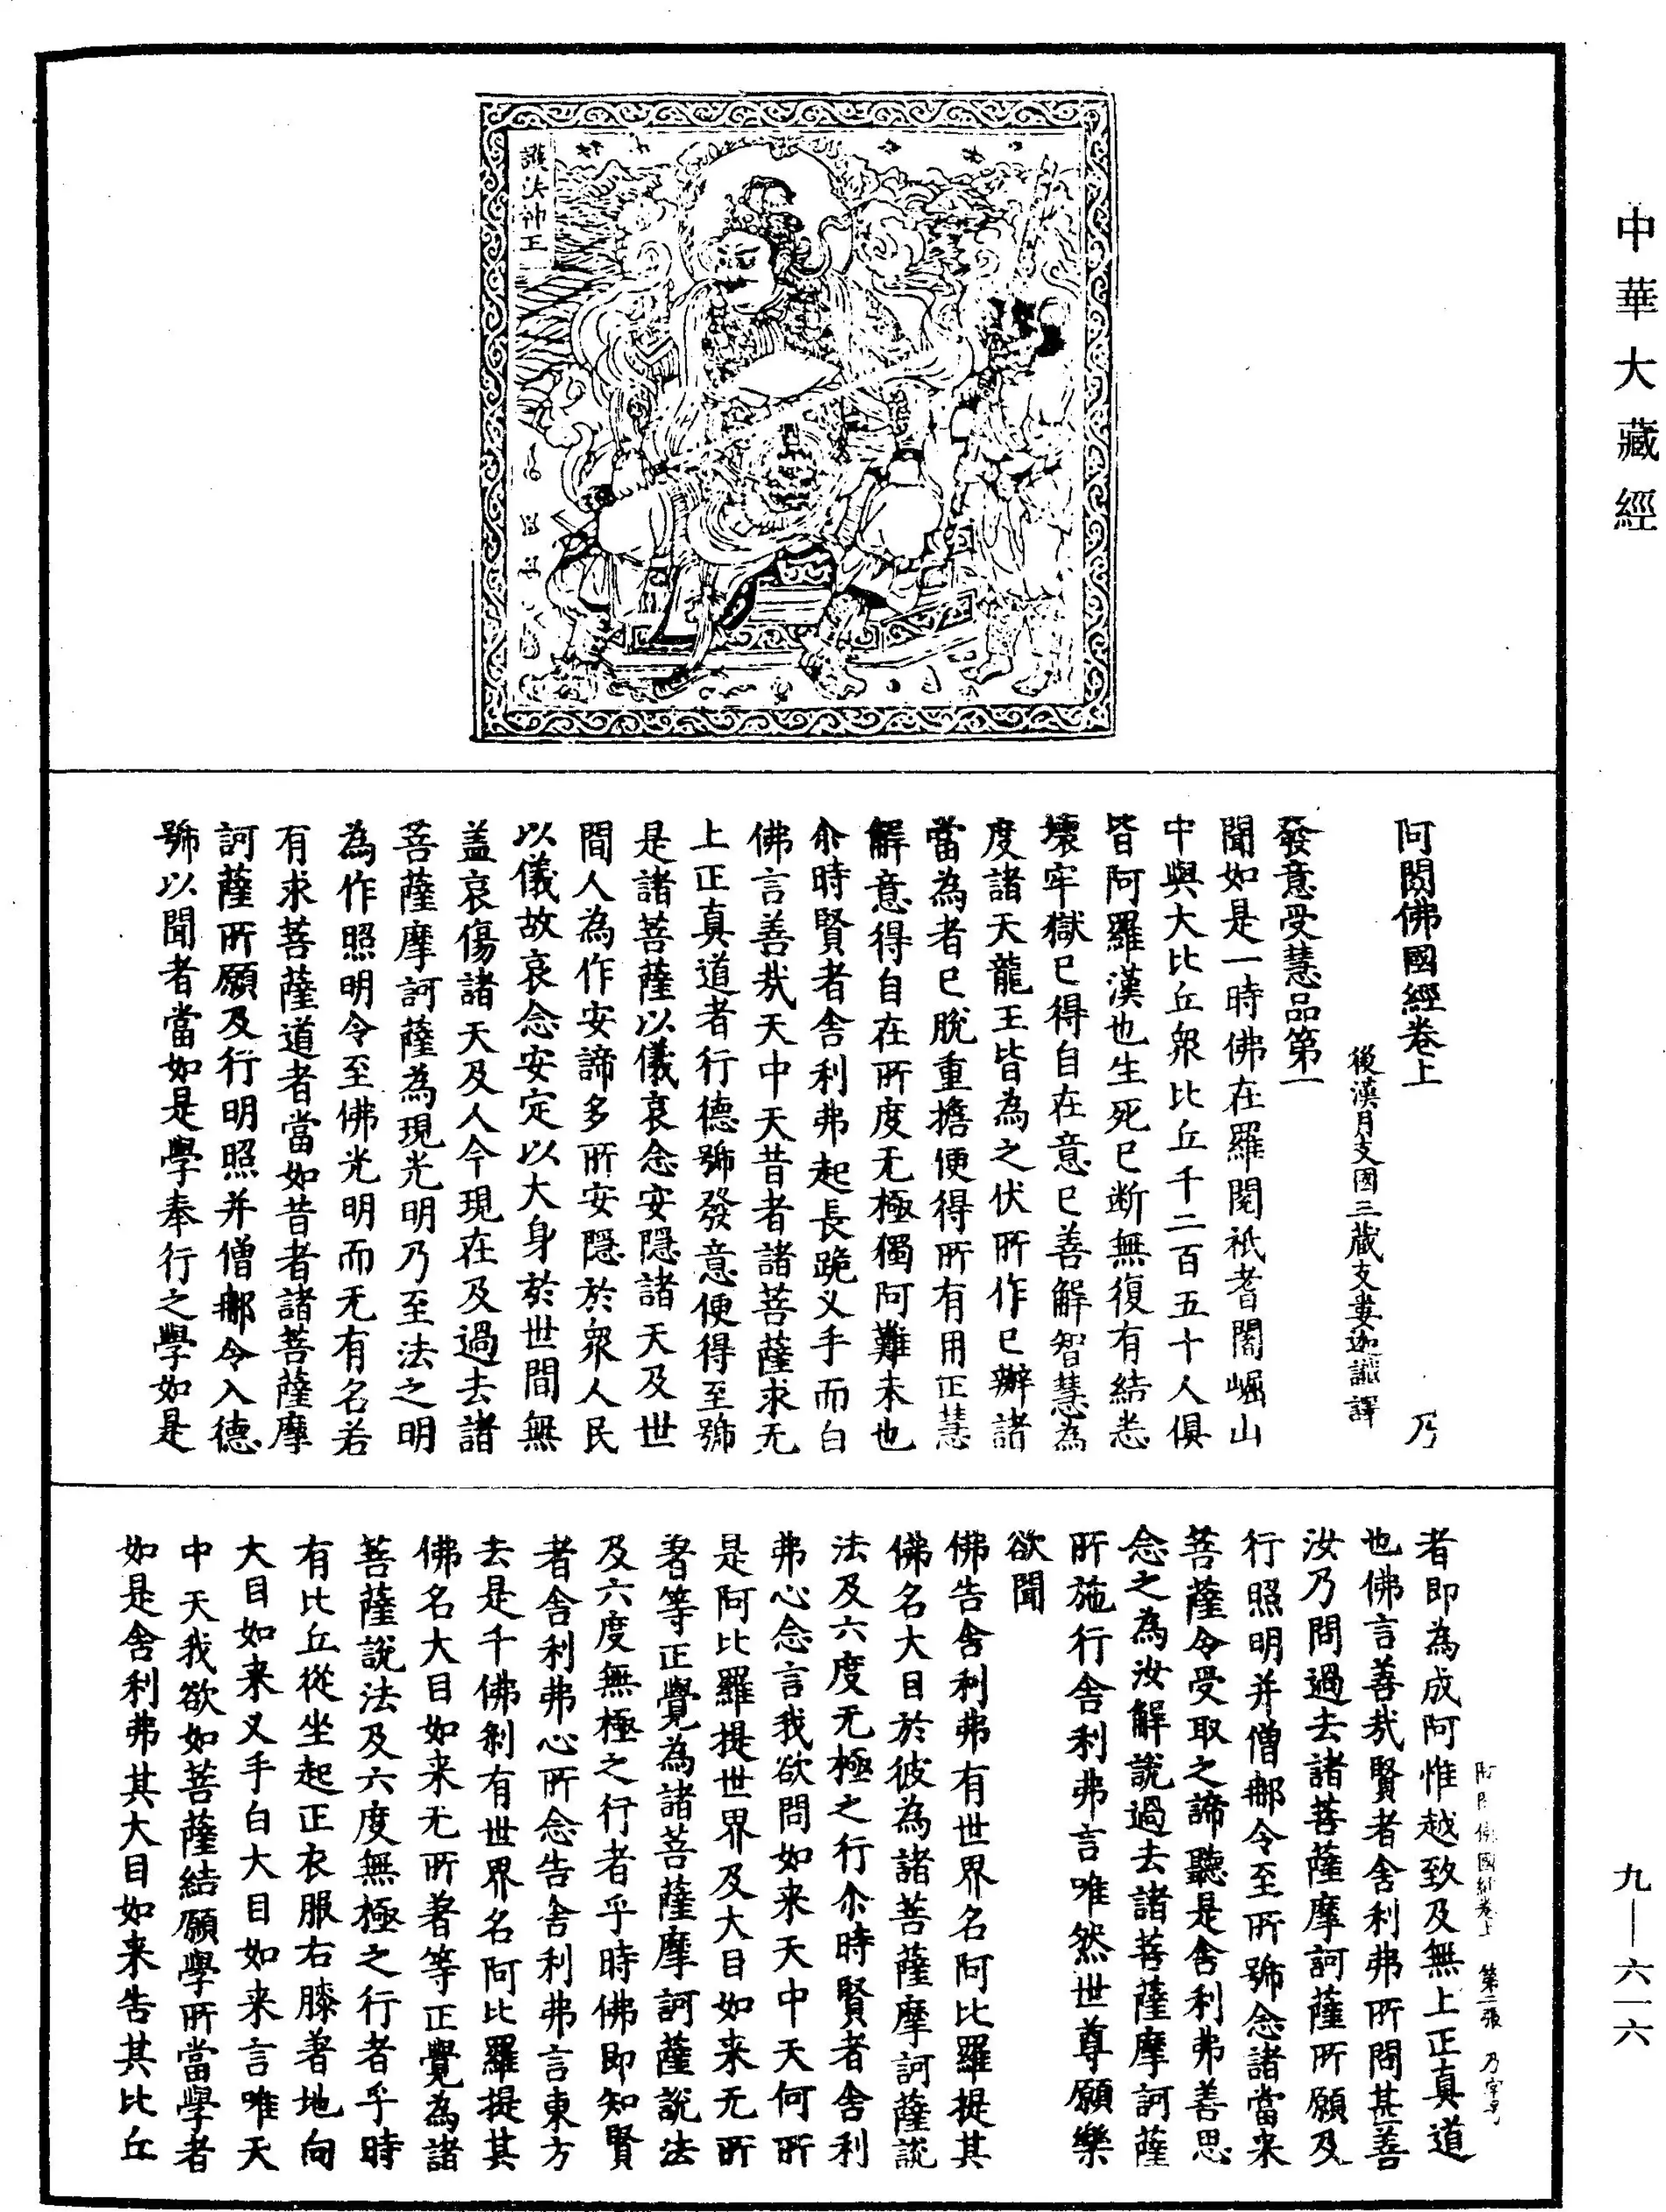 中華大藏經
護法神王
阿閦佛國經卷上　乃
後漢月支國三藏支婁迦讖譯
發意受慧品第一
聞如是一時佛在羅閱祇耆闍崛山
中與大比丘衆比丘千二百五十人俱
皆阿羅漢也生死已断無復有結悉
壊牢獄已得自在意已善解智慧為
度諸天龍王皆為之伏所作已辦諸
當為者已脫重擔便得所有用正慧
解意得自在所度无極獨阿難未也
尒時賢者舎利弗起長跪叉手而白
佛言善㢤天中天昔者諸菩薩求无
上正真道者行德號發意便得至號
是諸菩薩以儀哀念安隠諸天及世
間人為作安諦多所安隠於衆人民
以儀故哀念安定以大身於世間無
盖哀傷諸天及人今現在及過去諸
菩薩摩訶薩為現光明乃至法之明
為作照明令至佛光明而无有名若
有求菩薩道者當如昔者諸菩薩摩
訶薩所願及行明照并僧那令入德
號以聞者當如是學奉行之學如是
者即為成阿惟越致及無上正真道
也佛言善㢤賢者舎利弗所問甚善
汝乃問過去諸菩薩摩訶薩所願及
行照明并僧那令至所號念諸當来
菩薩令受取之諦聽是舎利弗善思
念之為汝解說過去諸菩薩摩訶薩
所施行舎利弗言唯然世尊願樂
欲聞
佛告舎利弗有世界名阿比羅提其
佛名大目於彼為諸菩薩摩訶薩說
法及六度无極之行尒時賢者舎利
弗心念言我欲問如来天中天何所
是阿比羅提世界及大目如来无所
著等正覺為諸菩薩摩訶薩說法
及六度無極之行者乎時佛即知賢
者舎利弗心所念告舎利弗言東方
去是千佛刹有世界名阿比羅提其
佛名大目如来无所著等正覺為諸
菩薩說法及六度無極之行者乎時
有比丘從坐起正衣服右膝著地向
大目如来叉手白大目如来言唯天
中天我欲如菩薩結願學所當學者
如是舎利弗其大目如来告其比丘
阿閦佛國經卷上　第二張　乃字号
九—六一六